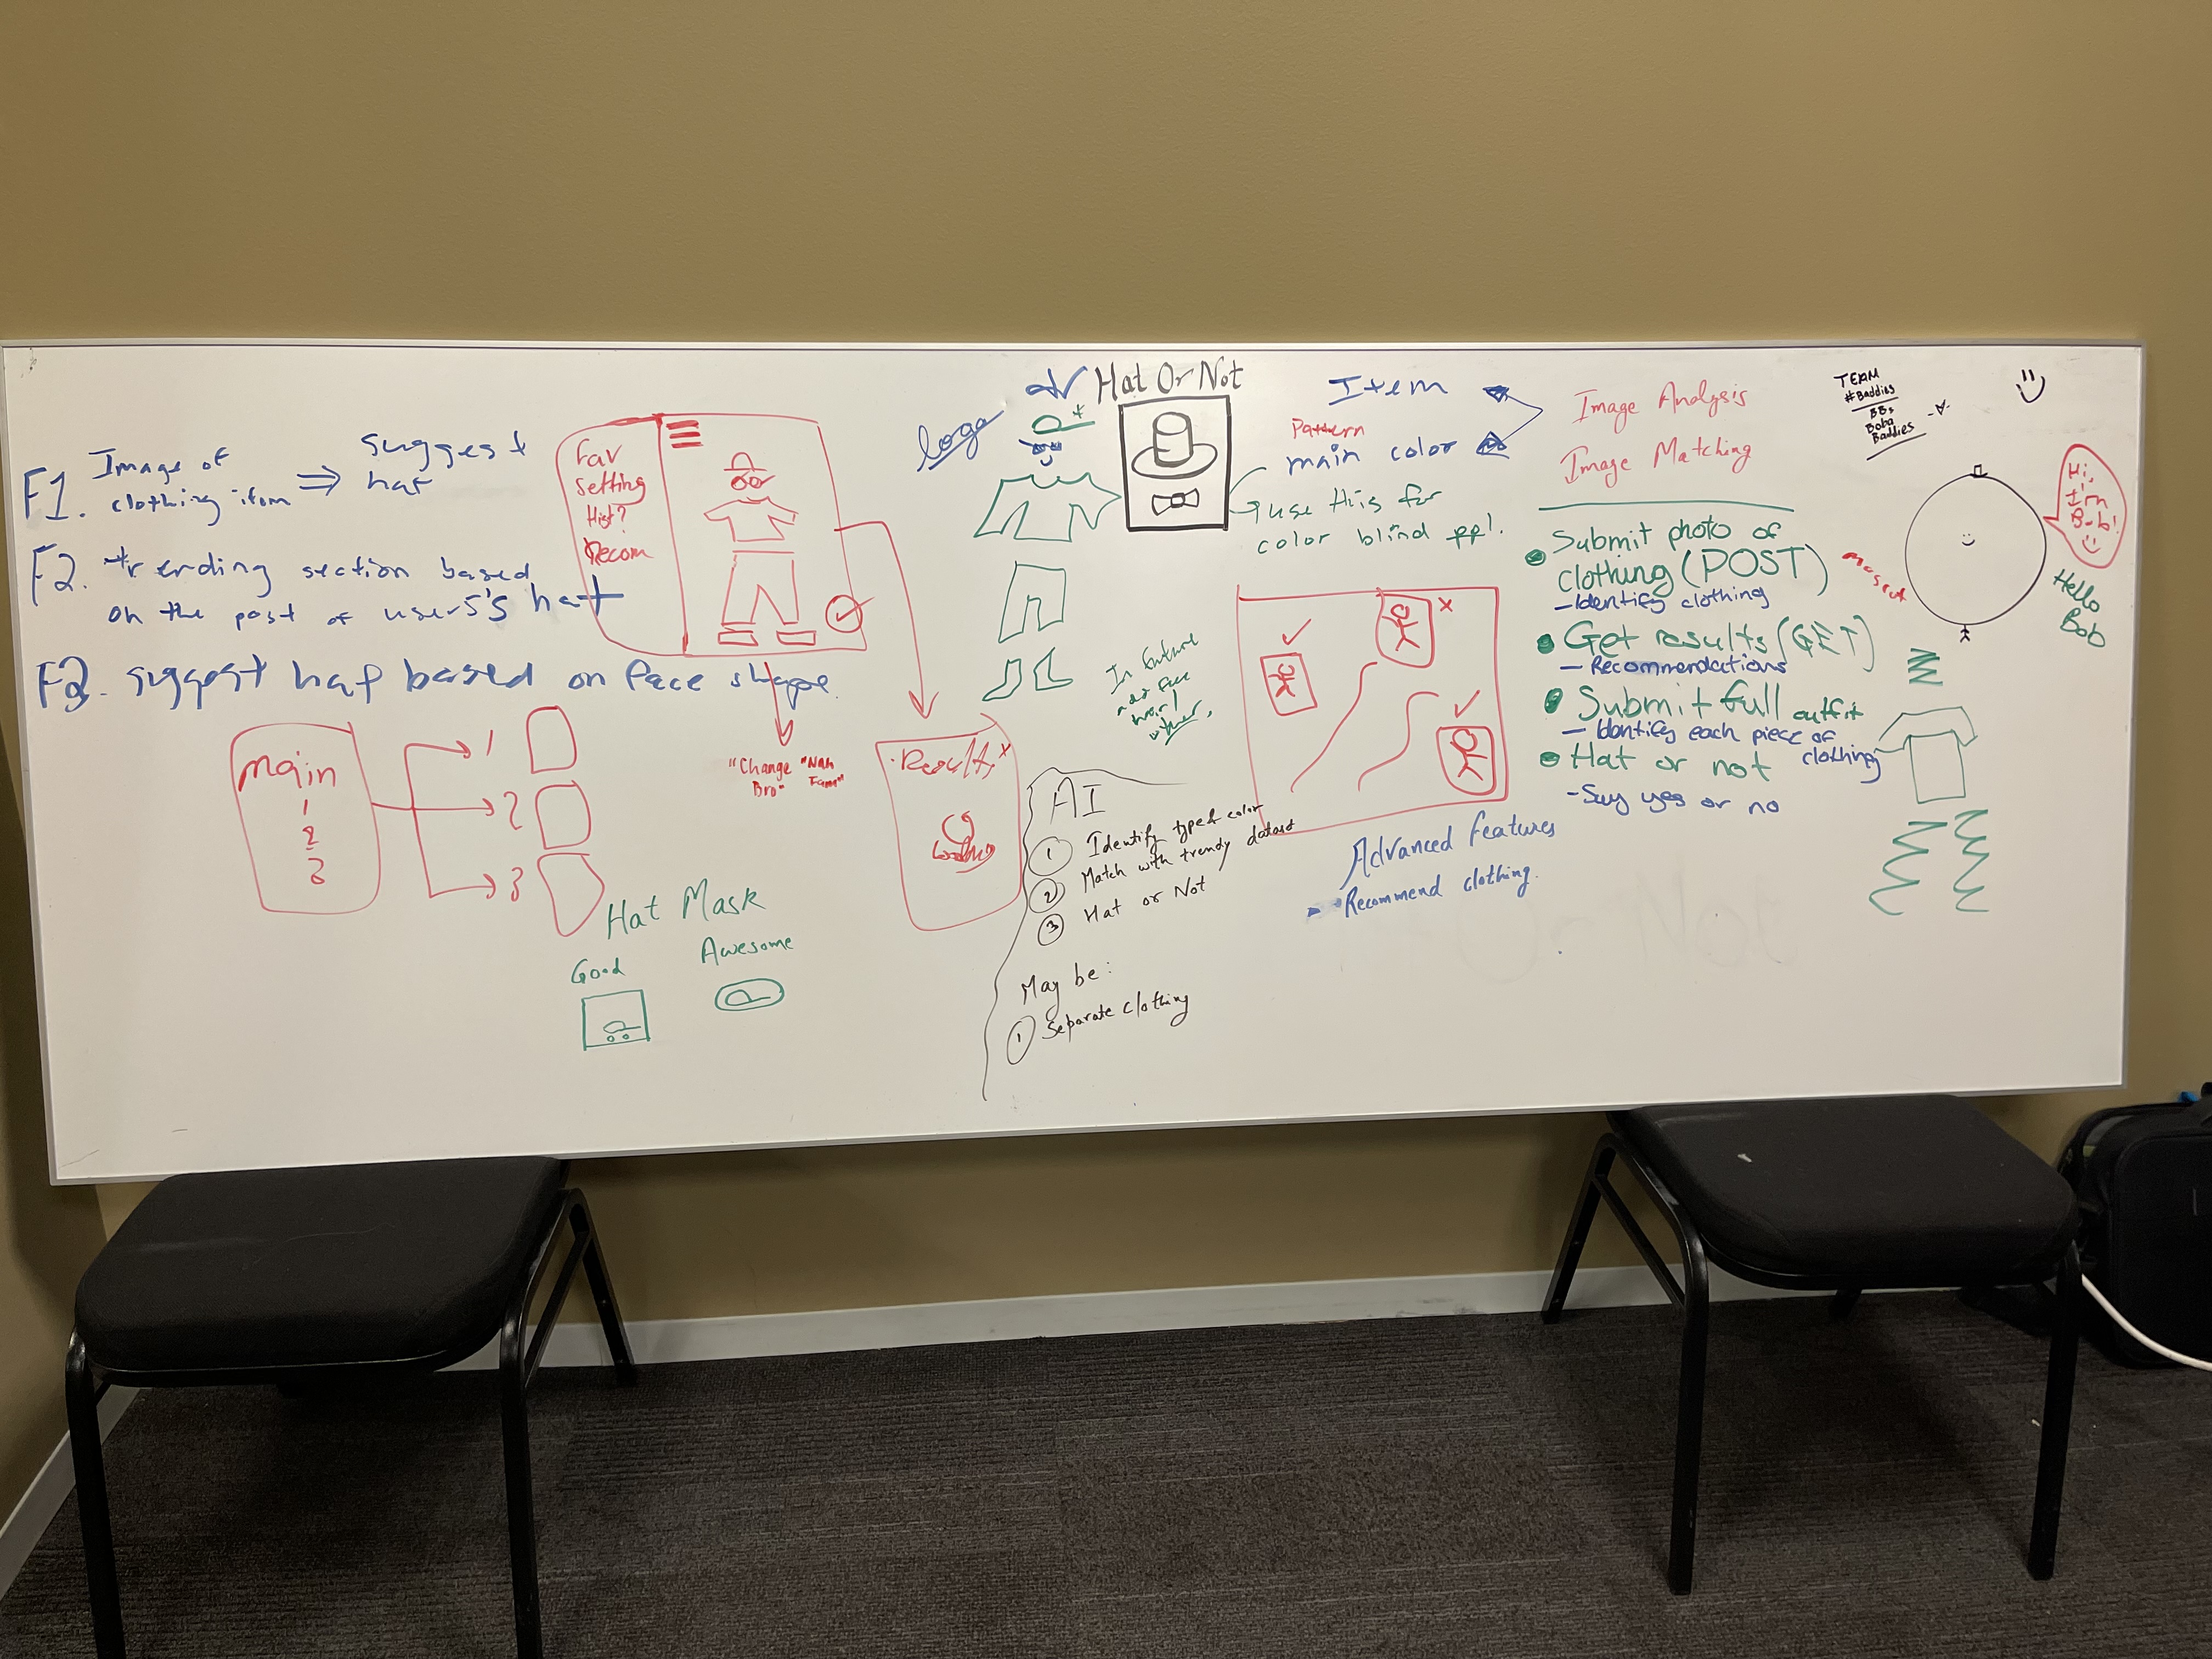 F1. Image of
clothing item ⇒ suggest
hat
F2. trending section based
on the post of users's hat
F3. suggest hat based on face shape.
Fav
Setting
Hist?
Recom
"Change
Bro"
"Nah
Fam"
main
1
2
3
1
2
3
Hat Mask
Good
Awesome
Results x
Loading
logo
Hat Or Not
Item
Pattern
main color
use this for
color blind ppl.
In future
add face
hair/
AI
1 Identify type & color
2 Match with trendy dataset
3 Hat or Not
May be:
1 Separate clothing
x
Advanced Features
Recommend clothing.
Image Analysis
Image Matching
Submit photo of
clothing (POST)
- Identify clothing
Get results (GET)
- Recommendations
Submit full outfit
- Identify each piece of
clothing
Hat or not
- Say yes or no
TEAM
#Baddies
BBs
Boba
Baddies
mascot
Hi,
I'm
Bob!
Hello
Bob